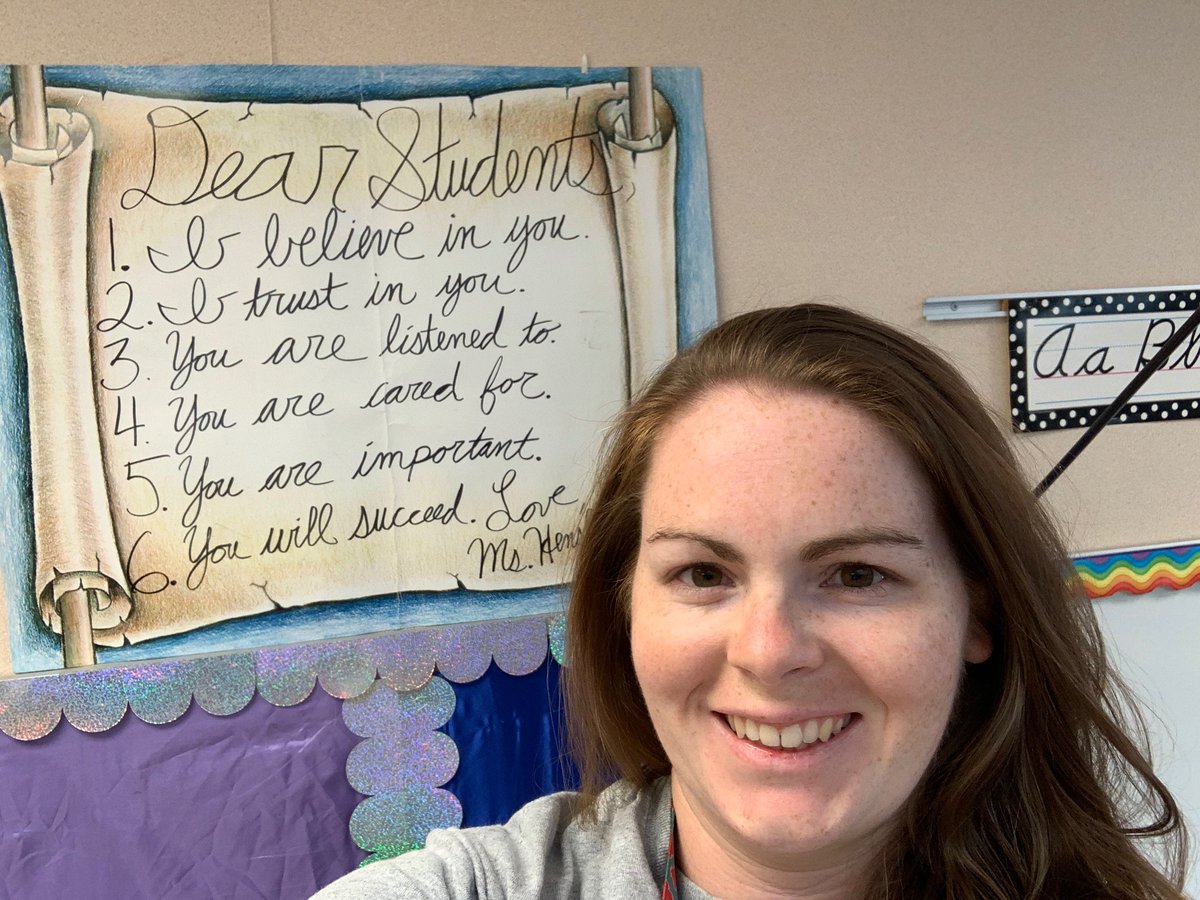 Dear Students,
1. I believe in you.
2. I trust in you.
3. You are listened to.
4. You are cared for.
5. You are important.
6. You will succeed. Love,
Ms.
Aa